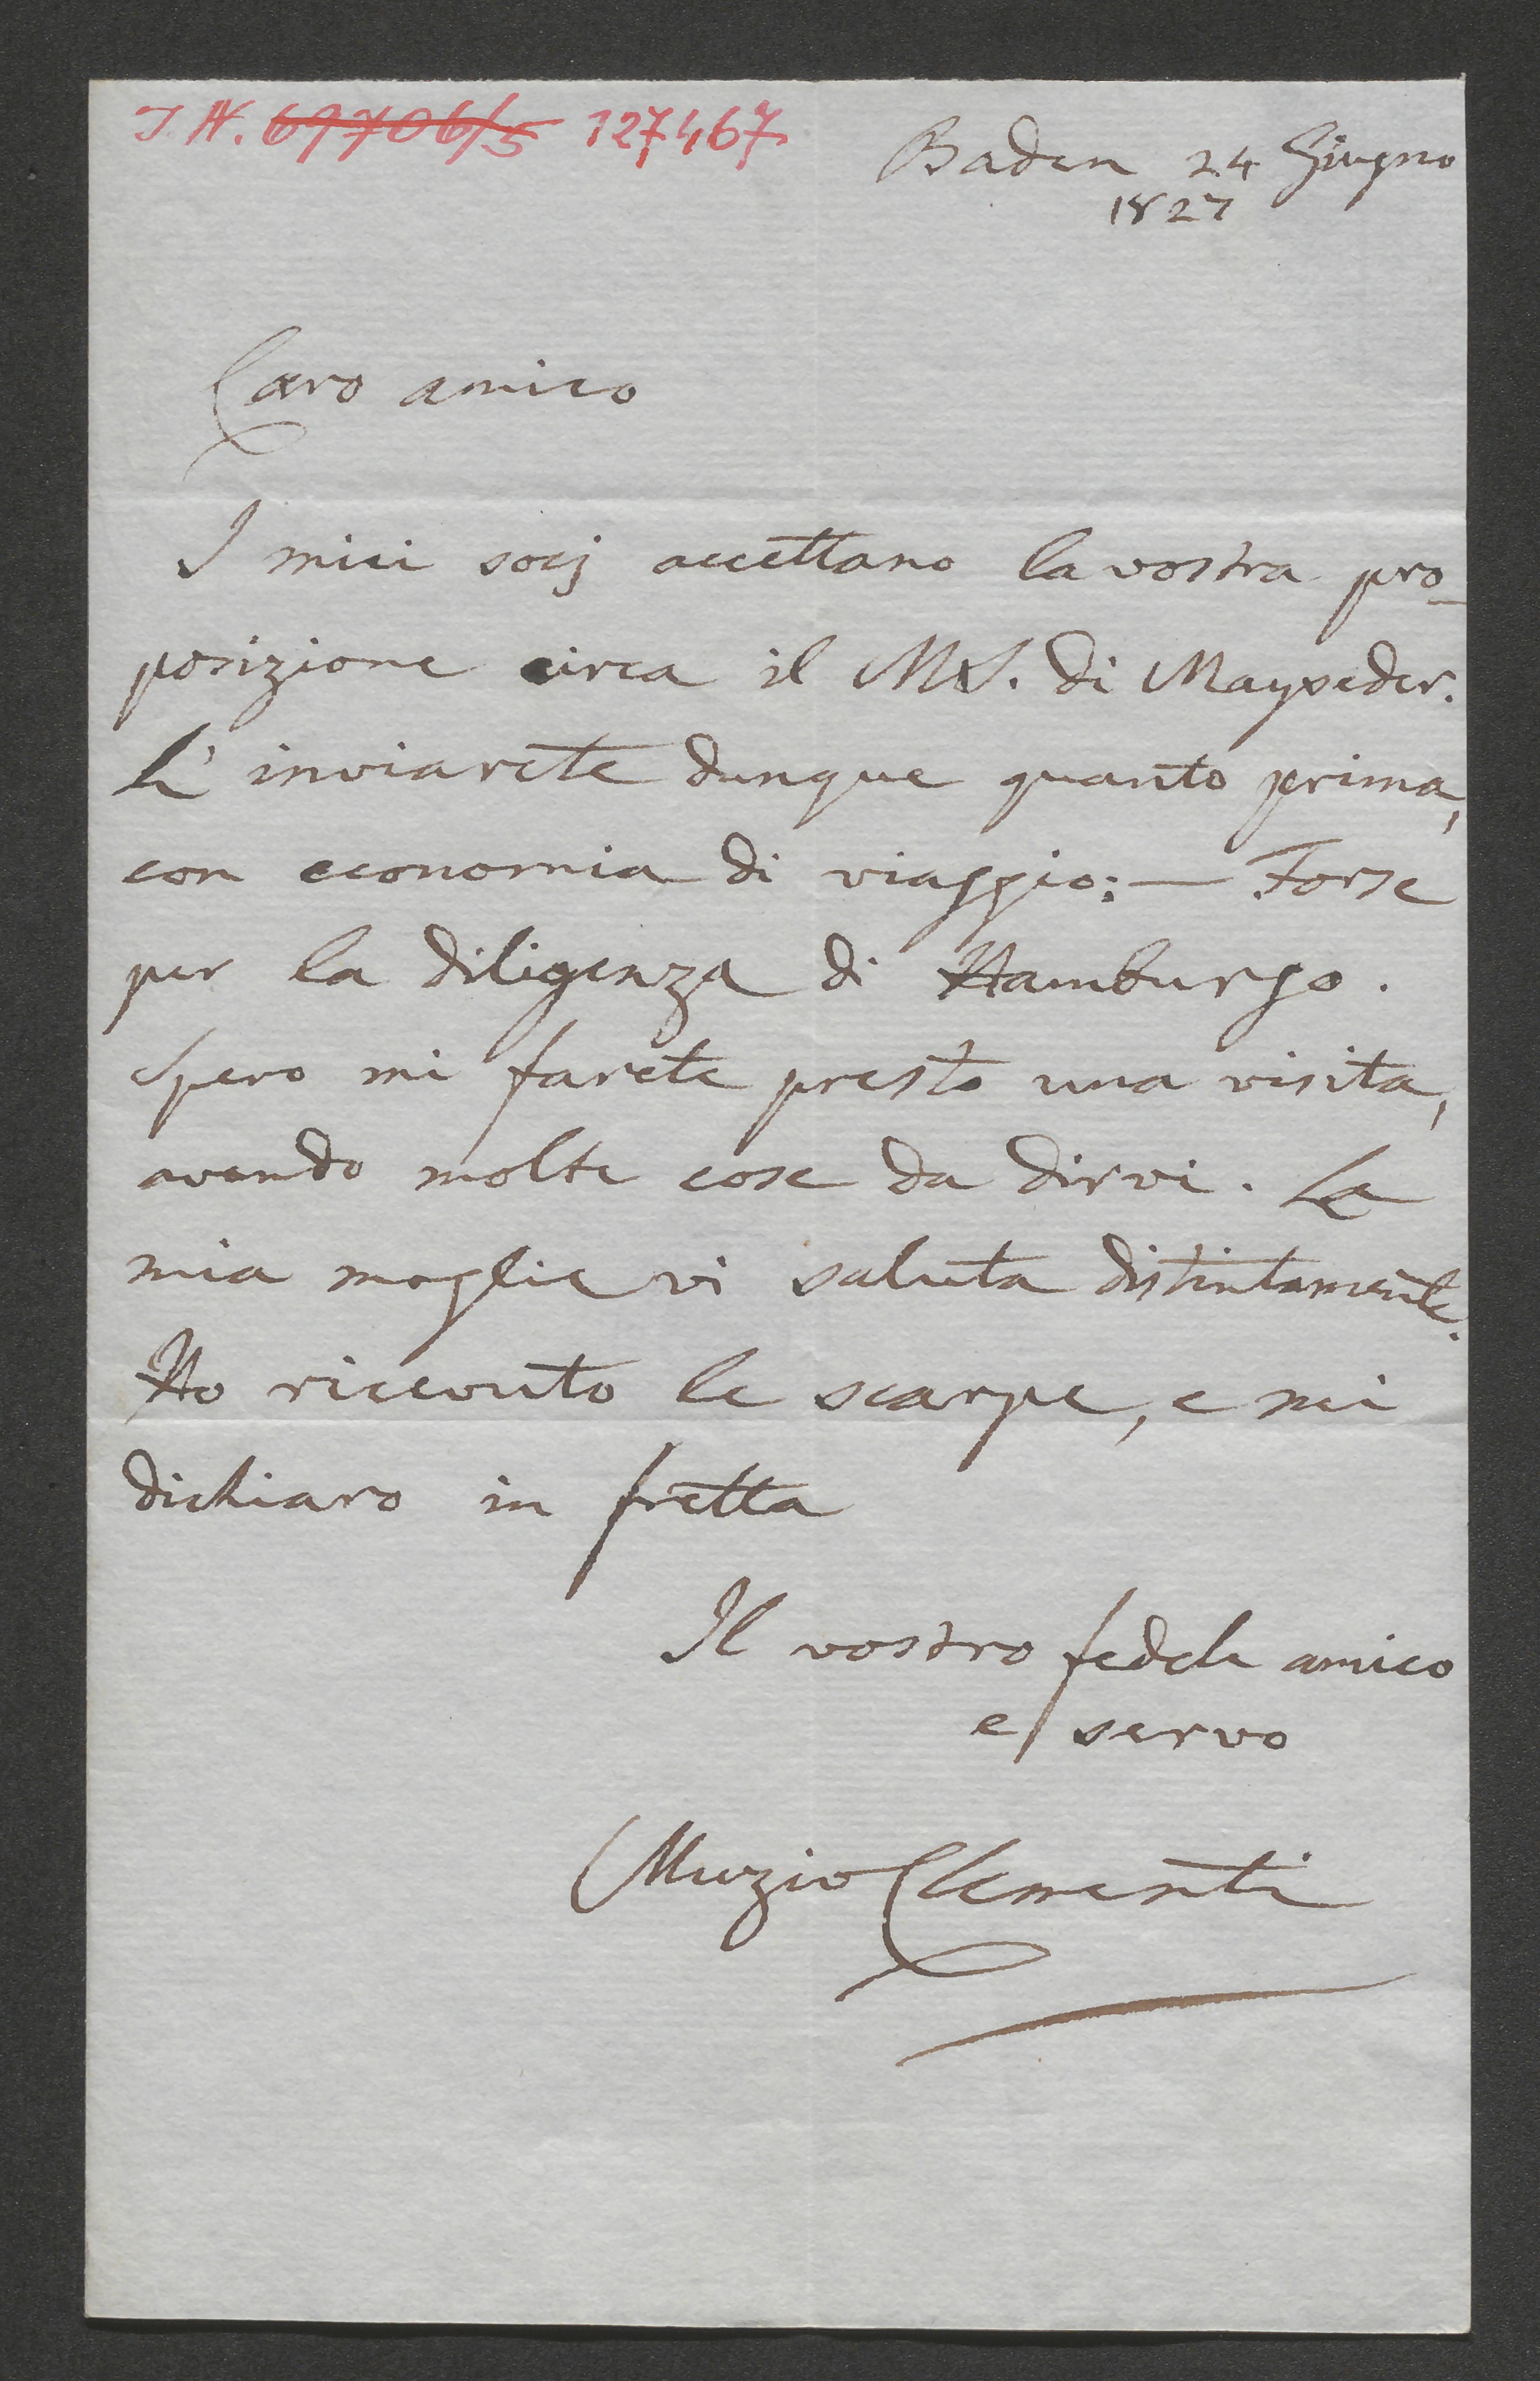 I. N. 69706/5 127467
Baden 24 Giugno
1827
Caro amico
I miei socj accettano la vostra pro-
posizione circa il MS. di Mayseder.
L'inviarete dunque quanto prima,
con economia di viaggio; — Forse
per la diligenza di Hamburgo.
Spero mi farete presto una visita,
avendo molte cose da dirvi. La
mia moglie vi saluta distintamente.
Ho ricevuto le scarpe, e mi
dichiaro in fretta
Il vostro fedele amico
e servo
Muzio Clementi